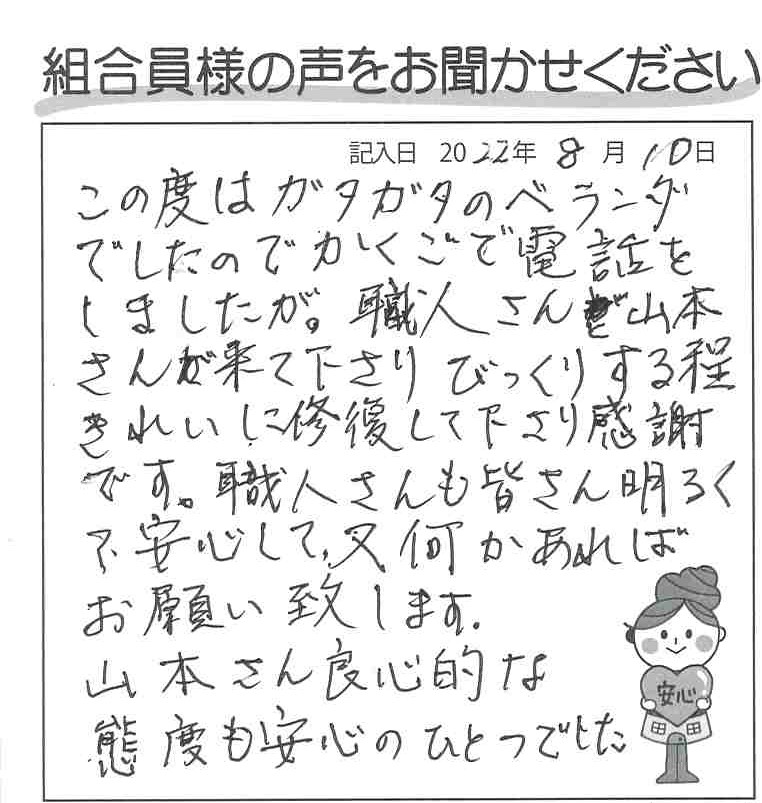 組合員様の声をお聞かせください
記入日 2022年 8月 10日
この度はガタガタのベランダ
でしたのでかくごで電話を
しましたが。職人さんが山本
さんが来て下さりびっくりする程
きれいに修復して下さり感謝
です。職人さんも皆さん明るく
て、安心して、又何かあれば
お願い致します。
山本さん良心的な
態度も安心のひとつでした
安心